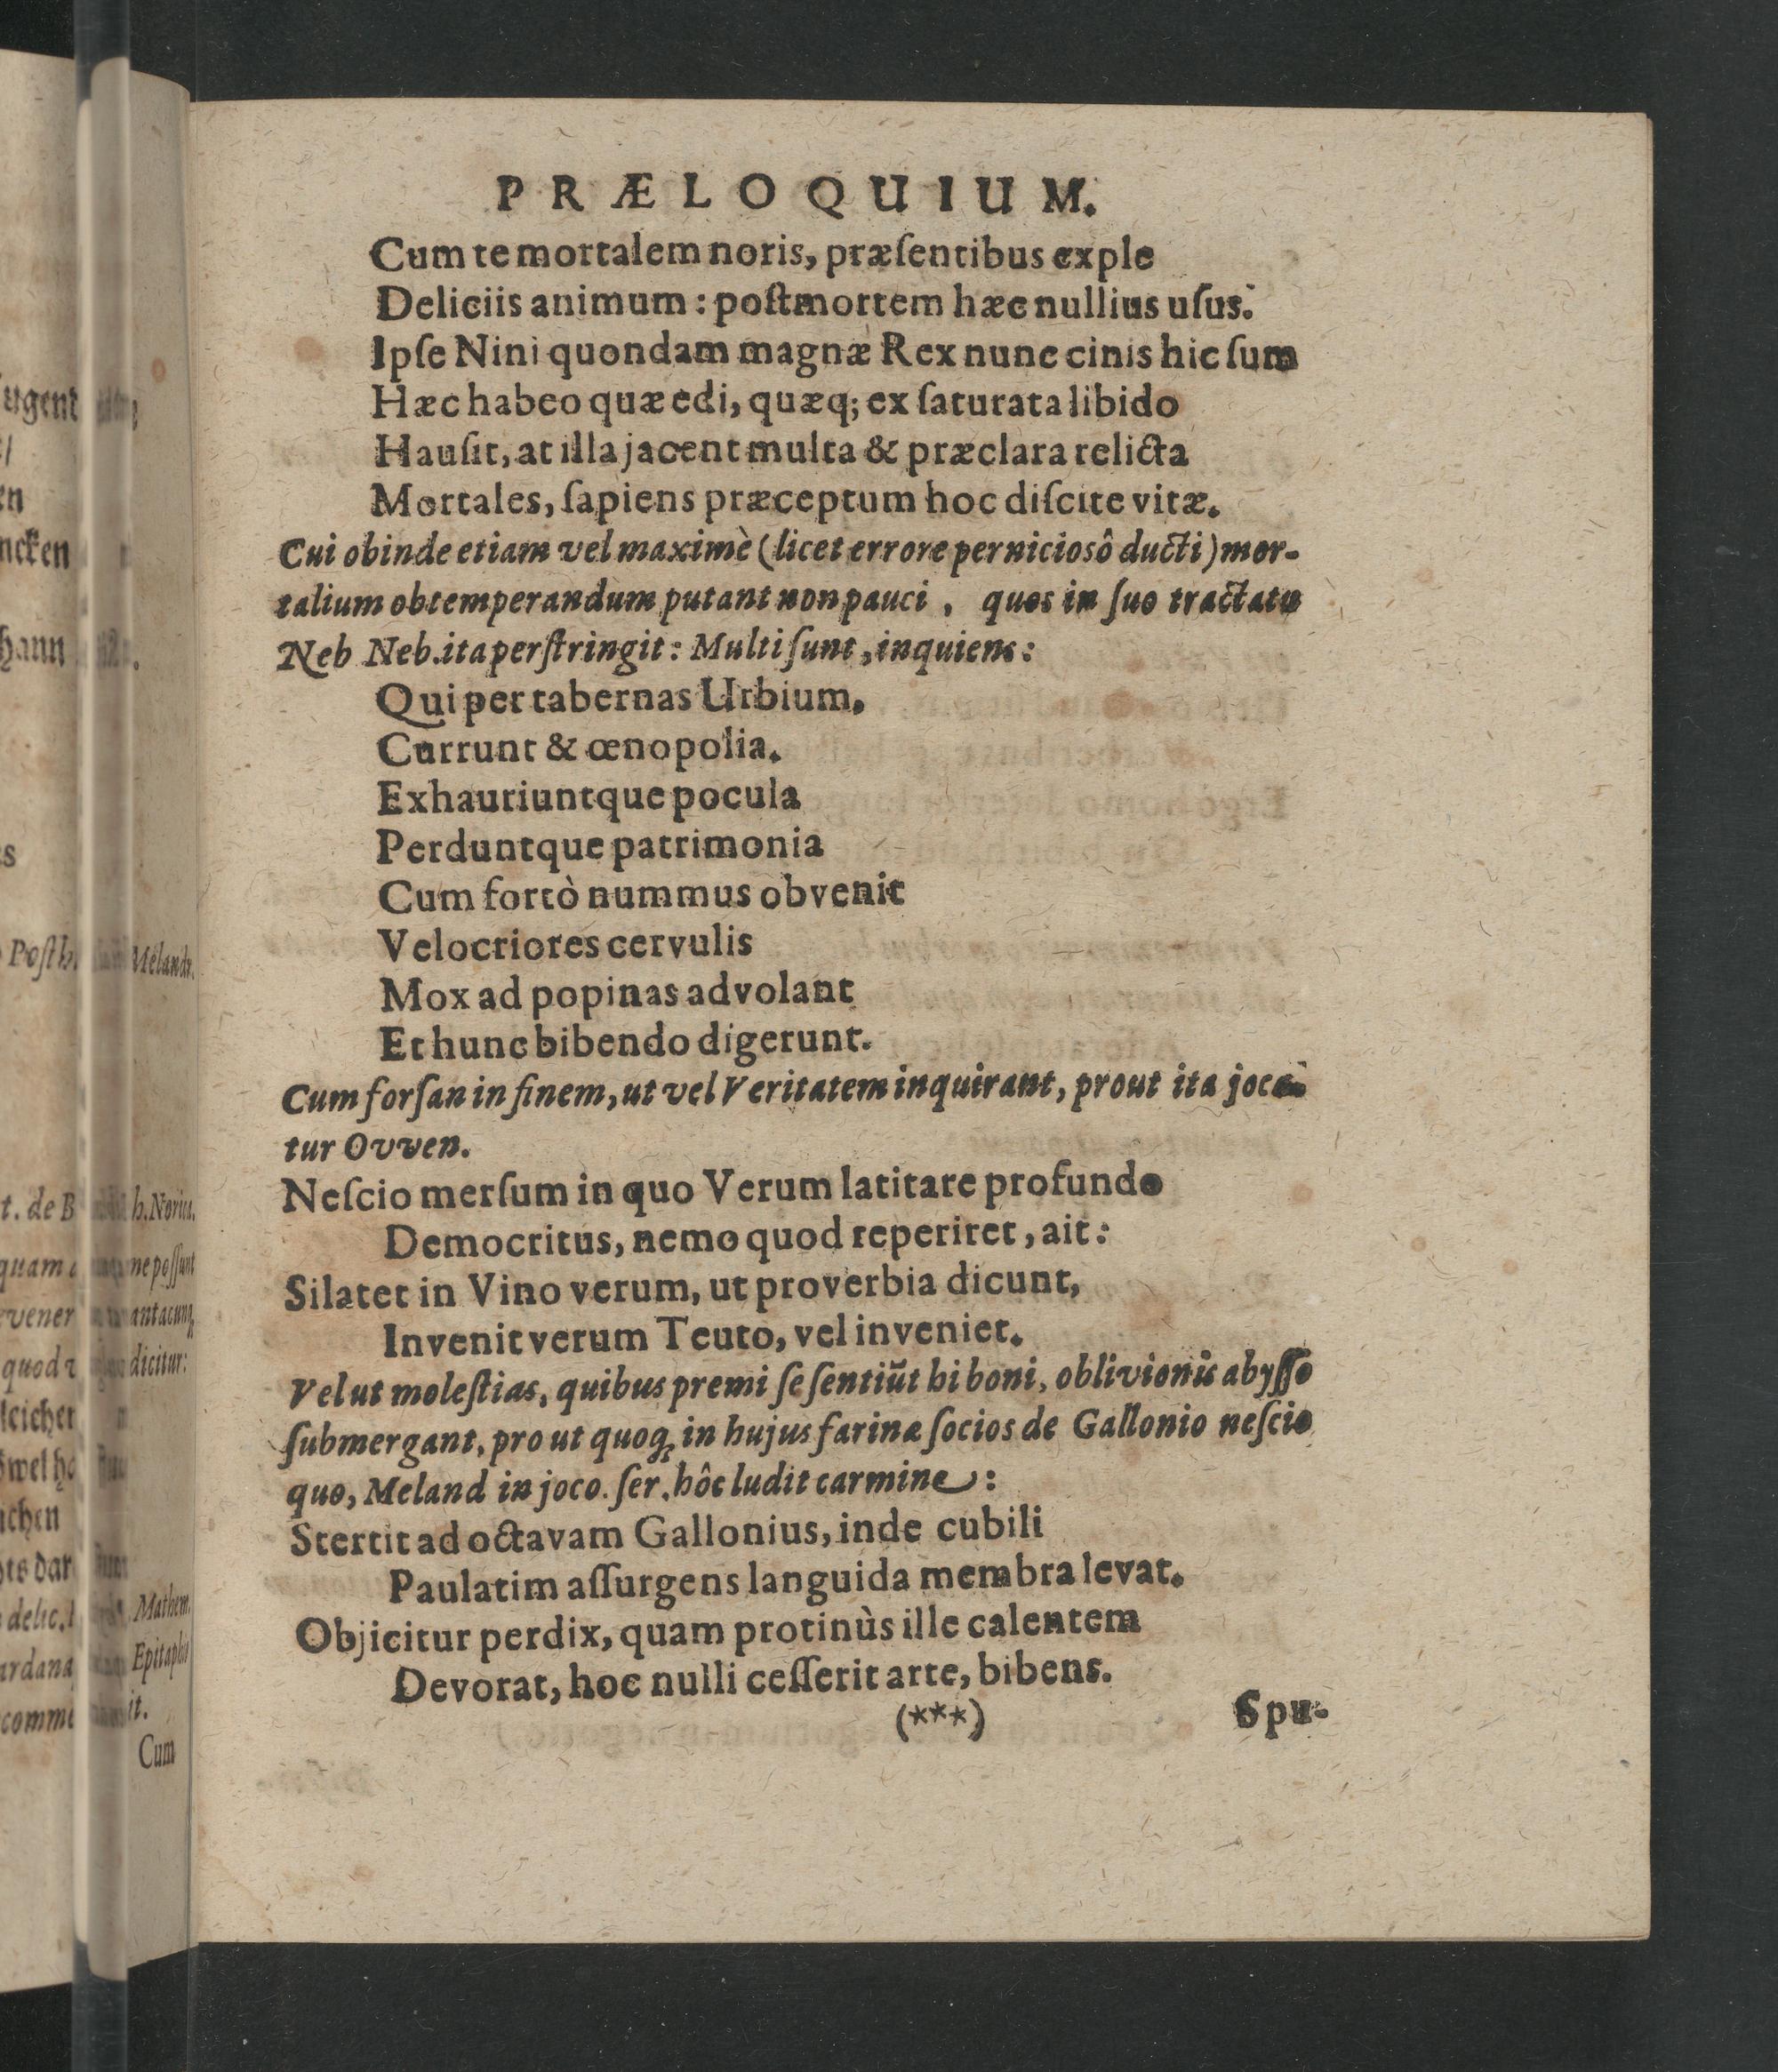 PRÆLOQUIUM.
Cum te mortalem noris, præſentibus exple
Deliciis animum: poſt mortem hæc nullius uſus.
Ipſe Nini quondam magnæ Rex nunc cinis hic ſum
Hæc habeo quæ edi, quæq; ex ſaturata libido
Hauſit, at illa jacent multa & præclara relicta
Mortales, ſapiens præceptum hoc diſcite vitæ.
Cui obinde etiam vel maximè (licet errore pernicioſô ducti) mor-
talium obtemperandum putant non pauci, quos in ſuo tractatu
Neb Neb. ita perſtringit: Multi ſunt, inquiens:
Qui per tabernas Urbium,
Currunt & œnopolia.
Exhauriuntque pocula
Perduntque patrimonia
Cum fortò nummus obvenit
Velocriores cervulis
Mox ad popinas advolant
Et hunc bibendo digerunt.
Cum forſan in finem, ut vel Veritatem inquirant, prout ita joca-
tur Ovven.
Neſcio merſum in quo Verum latitare profundo
Democritus, nemo quod reperiret, ait:
Si latet in Vino verum, ut proverbia dicunt,
Invenit verum Teuto, vel inveniet.
Vel ut moleſtias, quibus premi ſe ſentiūt hi boni, oblivionis abyſſo
ſubmergant, pro ut quoq; in hujus farinæ ſocios de Gallonio neſcio
quo, Meland in joco. ſer. hôc ludit carmine:
Stertit ad octavam Gallonius, inde cubili
Paulatim aſſurgens languida membra levat.
Objicitur perdix, quam protinùs ille calentem
Devorat, hoc nulli ceſſerit arte, bibens.
(***)
Spu-